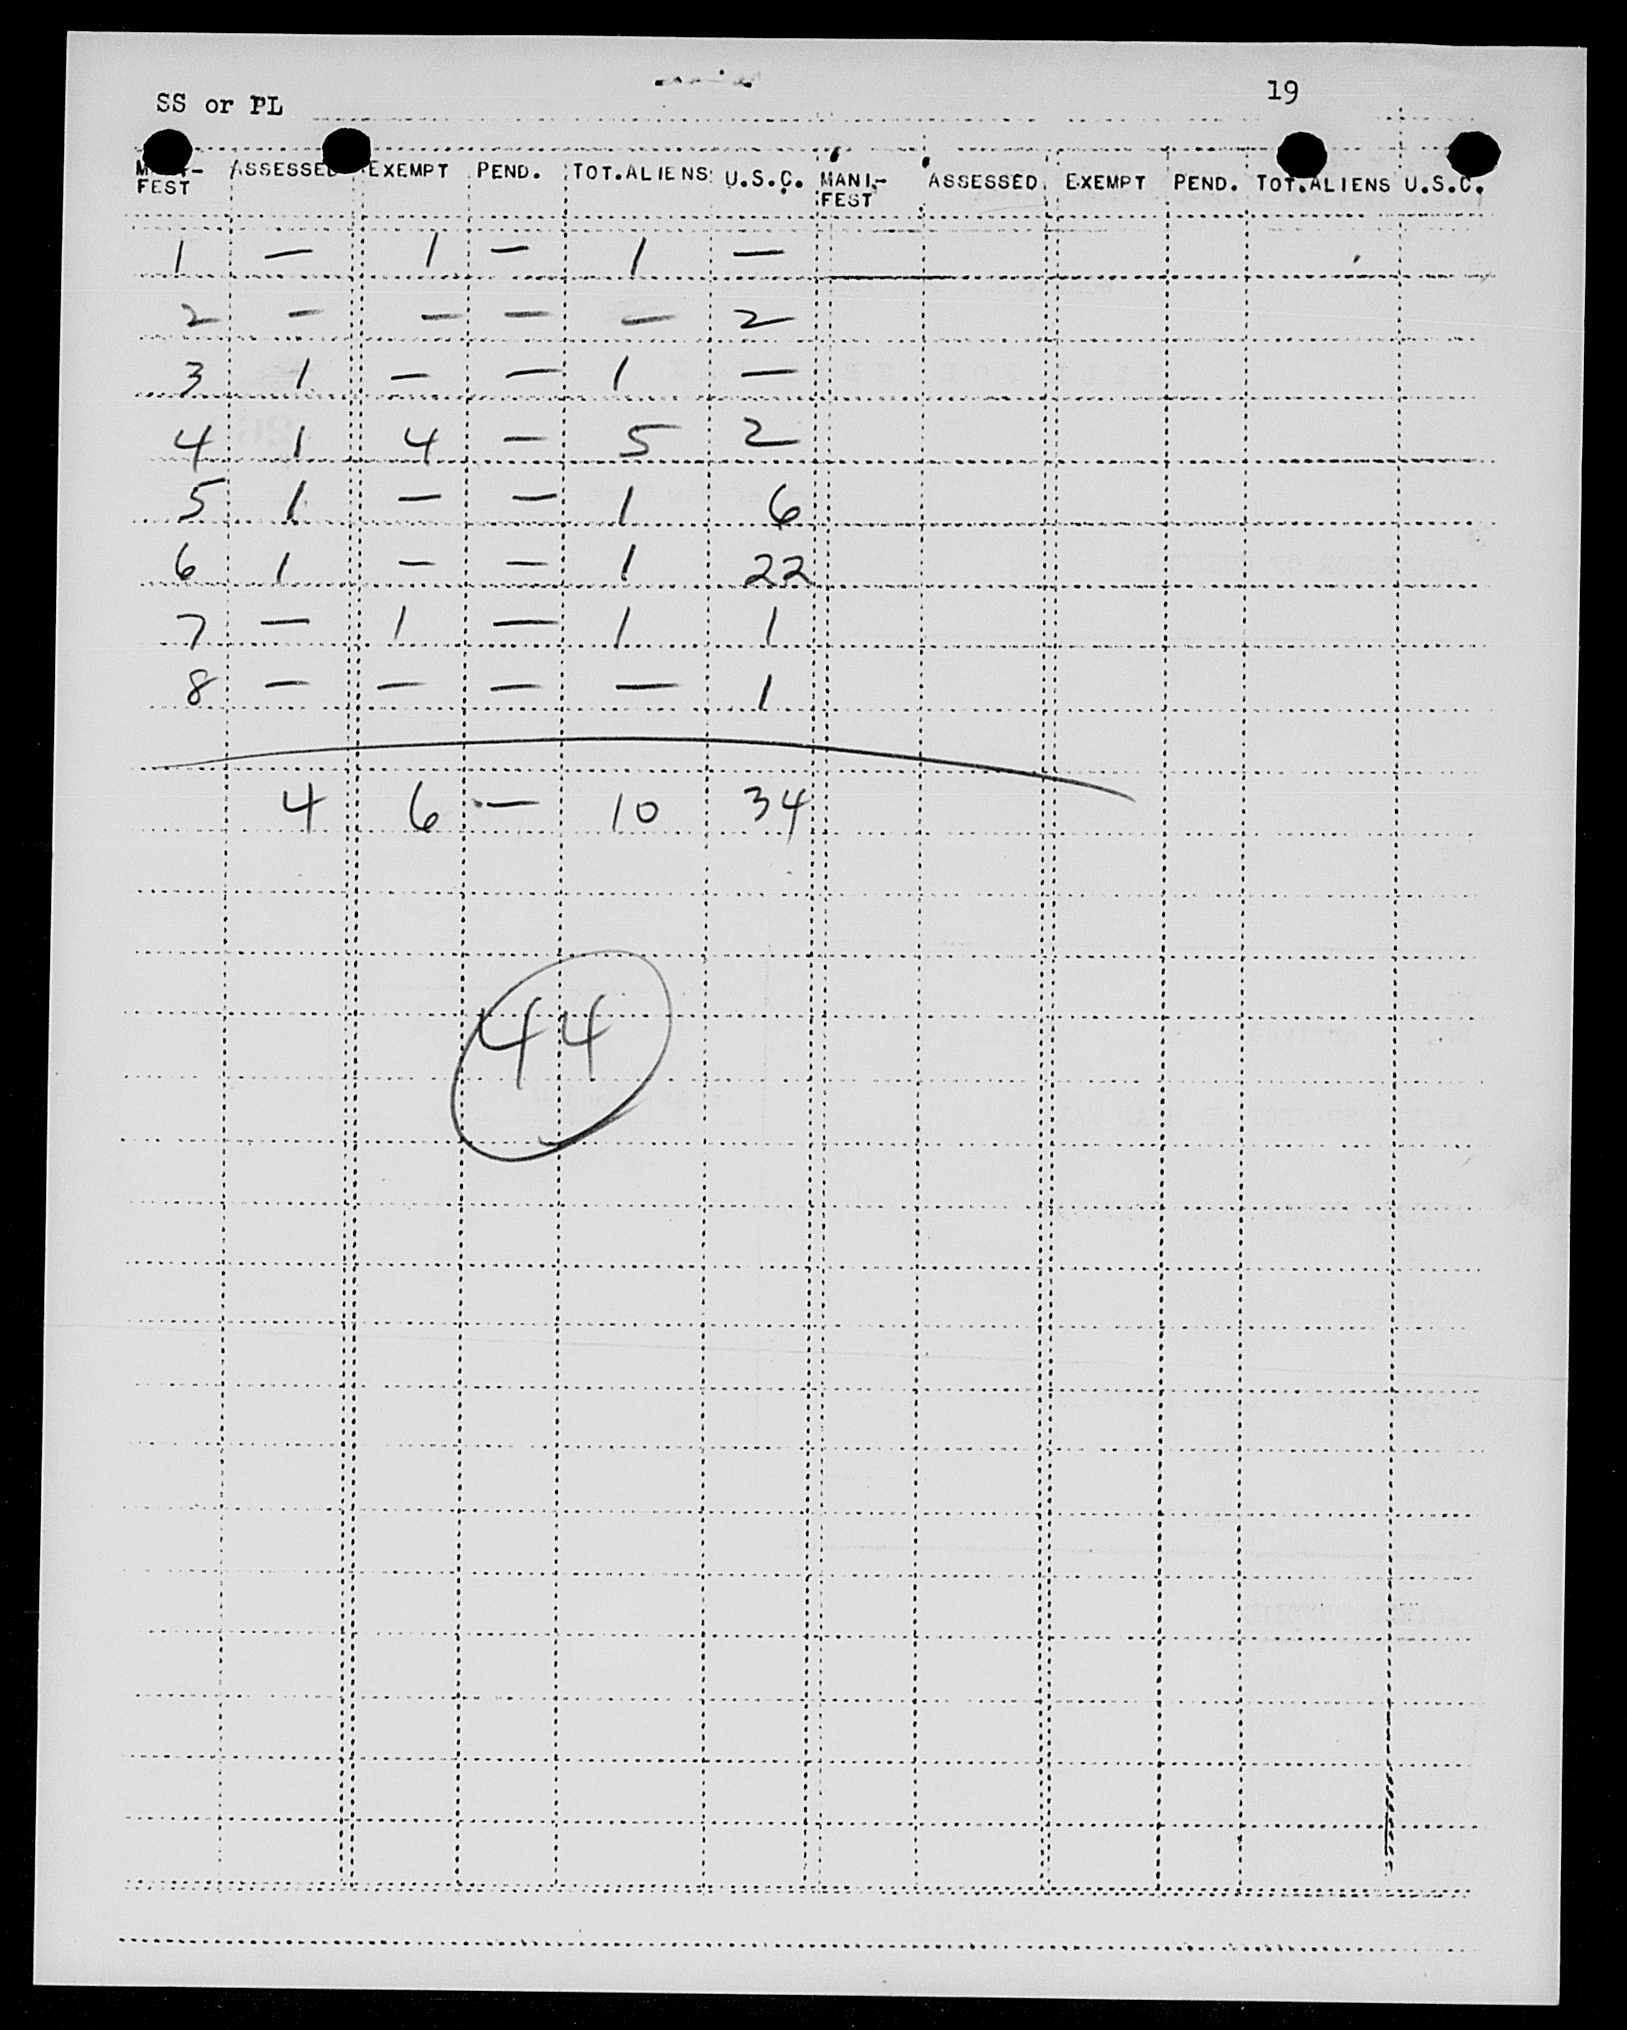 SS or PL 19
MANI- ASSESSED EXEMPT PEND. TOT.ALIENS U.S.C. MANI- ASSESSED EXEMPT PEND. TOT.ALIENS U.S.C.
FEST FEST
1 — 1 — 1 —
2 — — — — 2
3 1 — — 1 —
4 1 4 — 5 2
5 1 — — 1 6
6 1 — — 1 22
7 — 1 — 1 1
8 — — — — 1
4 6 — 10 34
44